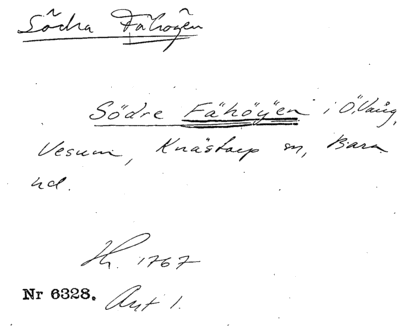 Södra Fähöÿen
Södre Fähöÿen i Ö.Vång,
Vesum, Knästorp sn, Bara
hd.
Hh. 1767
Nr 6328. Avt 1.